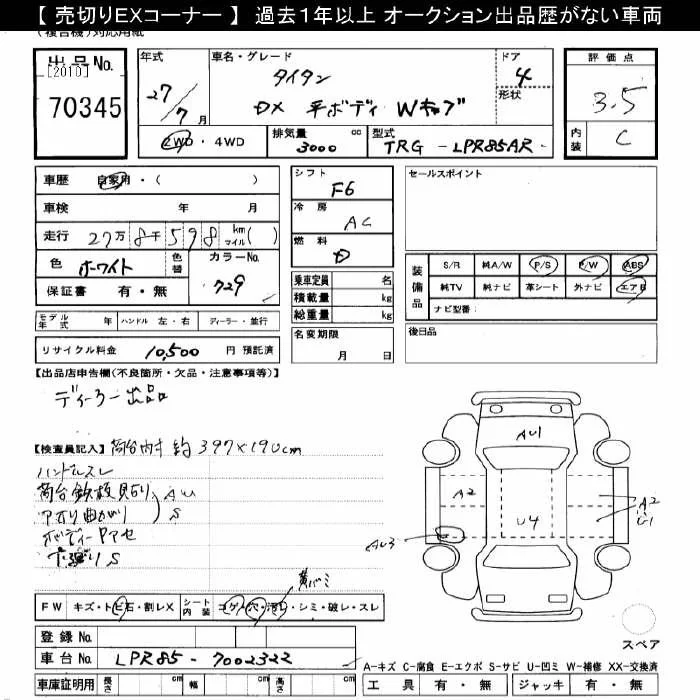 【 売切りEXコーナー 】 過去１年以上 オークション出品歴がない車両
(複合機)対応用紙
出品No.
[2010]
70345
年式
27/7月
車名・グレード
タイタン
DX 平ボディ Wキャブ
ドア
4
形状
評価点
3.5
内装
C
2WD・4WD
排気量 3000 cc
型式 TRG-LPR85AR
車歴 自家用・( )
車検 年 月
走行 27万8千598 km マイル( )
色 ホワイト
色替
カラーNo.
729
保証書 有・無
シフト
F6
冷房
AC
燃料
D
乗車定員 名
積載量 kg
総重量 kg
セールスポイント
装備品
S/R 純A/W P/S P/W ABS
純TV 純ナビ 革シート 外ナビ エアB
ナビ型番:
モデル年式 年 ハンドル 左・右 ディーラー・並行
名変期限
月 日
後日品
リサイクル料金 10,500 円 預託済
【出品店申告欄(不良箇所・欠品・注意事項等)】
ディーラー出品
【検査員記入】 荷台内寸 約397×190cm
ハンドルスレ
荷台鉄板貼り AU
アオリ曲がり S
ボディーPアセ
下廻り S
AU1
A2
U4
A2
U1
AU3
FW キズ・トビ石・割レX
シート内装 コゲ・穴・汚レ・シミ・破レ・スレ
黄バミ
登録No.
車台No. LPR85-7002322
車庫証明用 長さ cm 幅 cm 高さ cm
スペア
A-キズ C-腐食 E-エクボ S-サビ U-凹ミ W-補修 XX-交換済
工具 有・無 ジャッキ 有・無